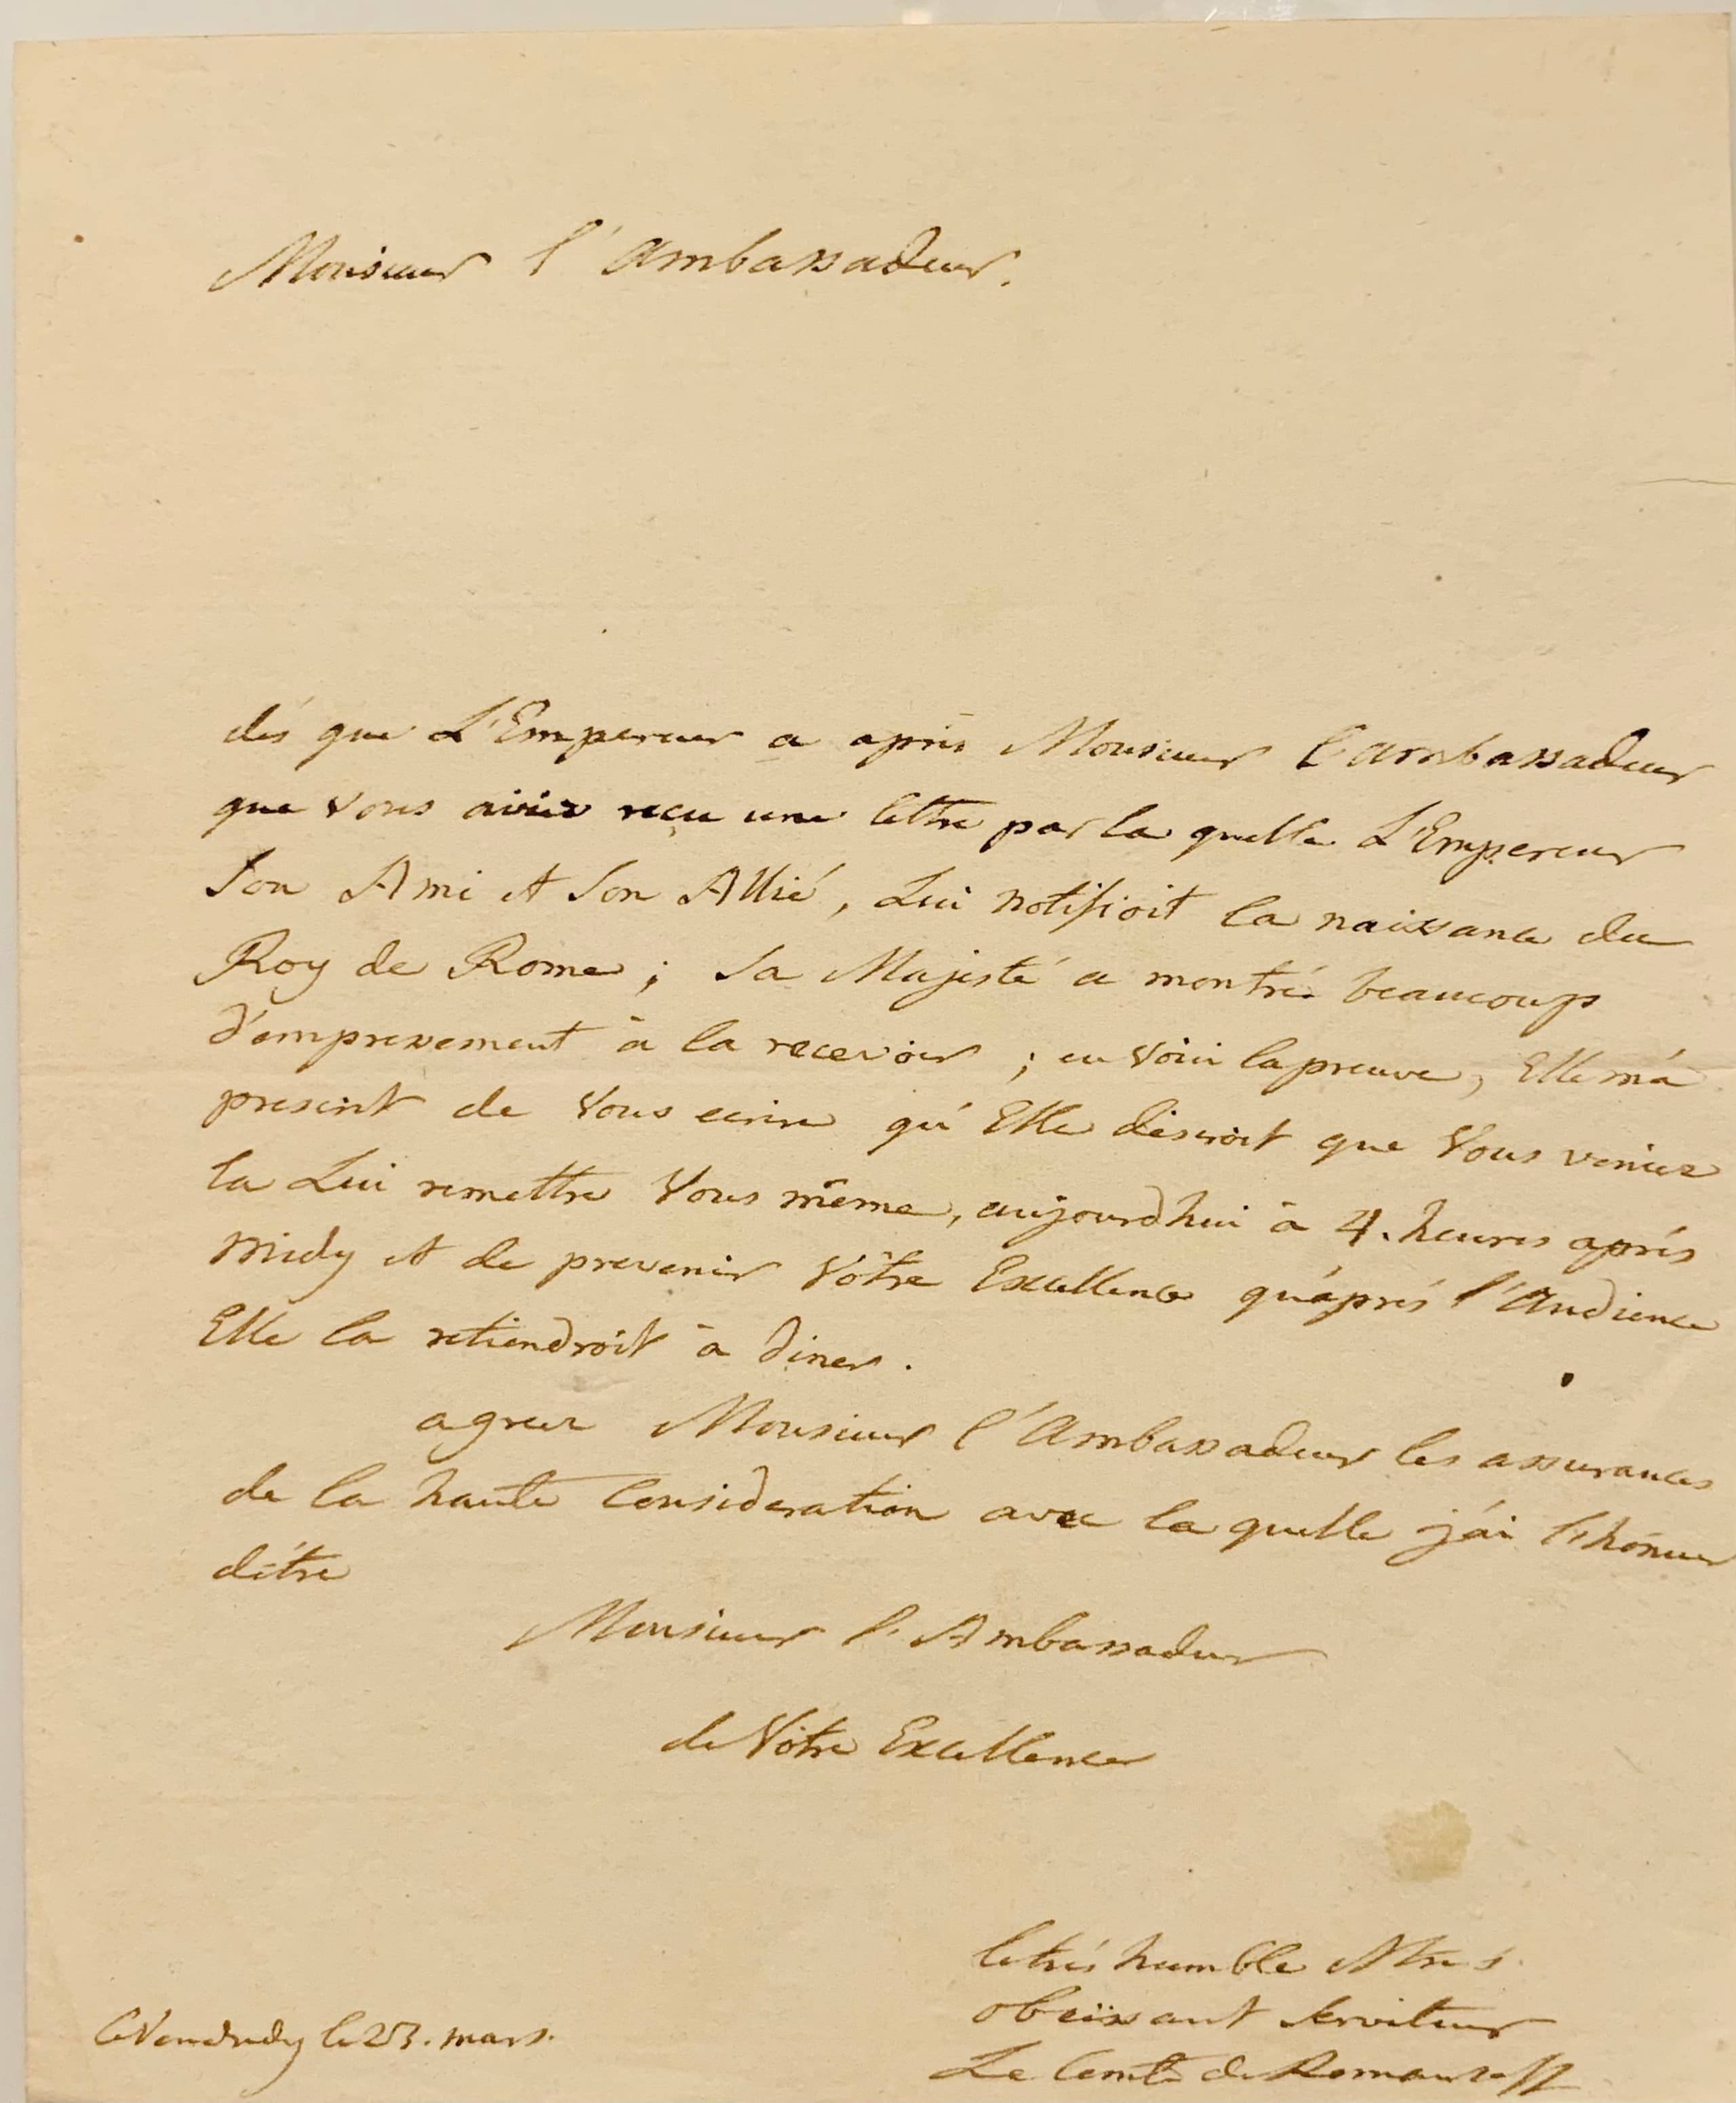 Monsieur l'Ambassadeur.
dés que L'Empereur a apris Monsieur l'ambassadeur
que Vous aviez reçu une lettre par la quelle L'Empereur
Son Ami et Son Allié, Lui notifioit la naissance du
Roy de Rome ; Sa Majesté a montré beaucoup
d'empressement à la recevoir ; en voici la preuve, Elle m'a
prescrit de Vous ecrire qu'Elle desiroit que Vous veniez
la Lui remettre Vous même, aujourdhui à 4. heures aprés
Midy et de prevenir Vôtre Excellence qu'aprés l'Audience
Elle la retiendroit à diner.
agreez Monsieur l'Ambassadeur les assurances
de la haute Consideration avec la quelle j'ai l'honeur
d'être
Monsieur l'Ambassadeur
de Vôtre Excellence
le trés humble et trés
obeissant Serviteur
Le Comte de Romanzoff
Ce Vendredy le 23. mars.